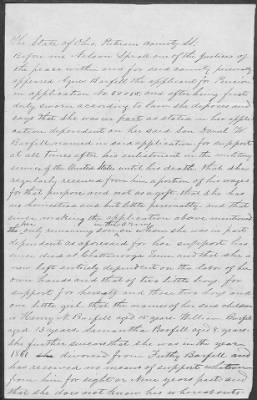 The State of Ohio, Pickering County SS.
Before me Nelson Speak one of the Justices of
the peace within and for said county personally
appeared Agnes Barfell the applicant for Pension
in application No. and after being first
duly sworn according to law she deposes and
says that she was in part as stated in her appli-
cation dependent on her said Son Daniel W.
Barfell named in said application for support
at all times after his enlistment in the military
service of the United States until his death. that she
regularly received from him a portion of his wages
for that purpose and not as a gift. that she has
no homestead and but little personalty. and that
since making the application above mentioned
her only remaining son in the army on whom she was in part
dependent as aforesaid for her support has
since died at Chattanooga Tenn. and that she is
now left entirely dependent on the labor of her
own hands and that of two little boys, for
support for herself and these two boys and
one little girl that the names of her said children
is Henry A Barfell aged 15 years William Barfell
aged 13 years. Samantha Barfell aged 8 years.
She further swears that she was in the year
1861 divorced from Barfell and
has received no means of support whatever
from him for eight or Nine years past and
that she does not know his whereabouts